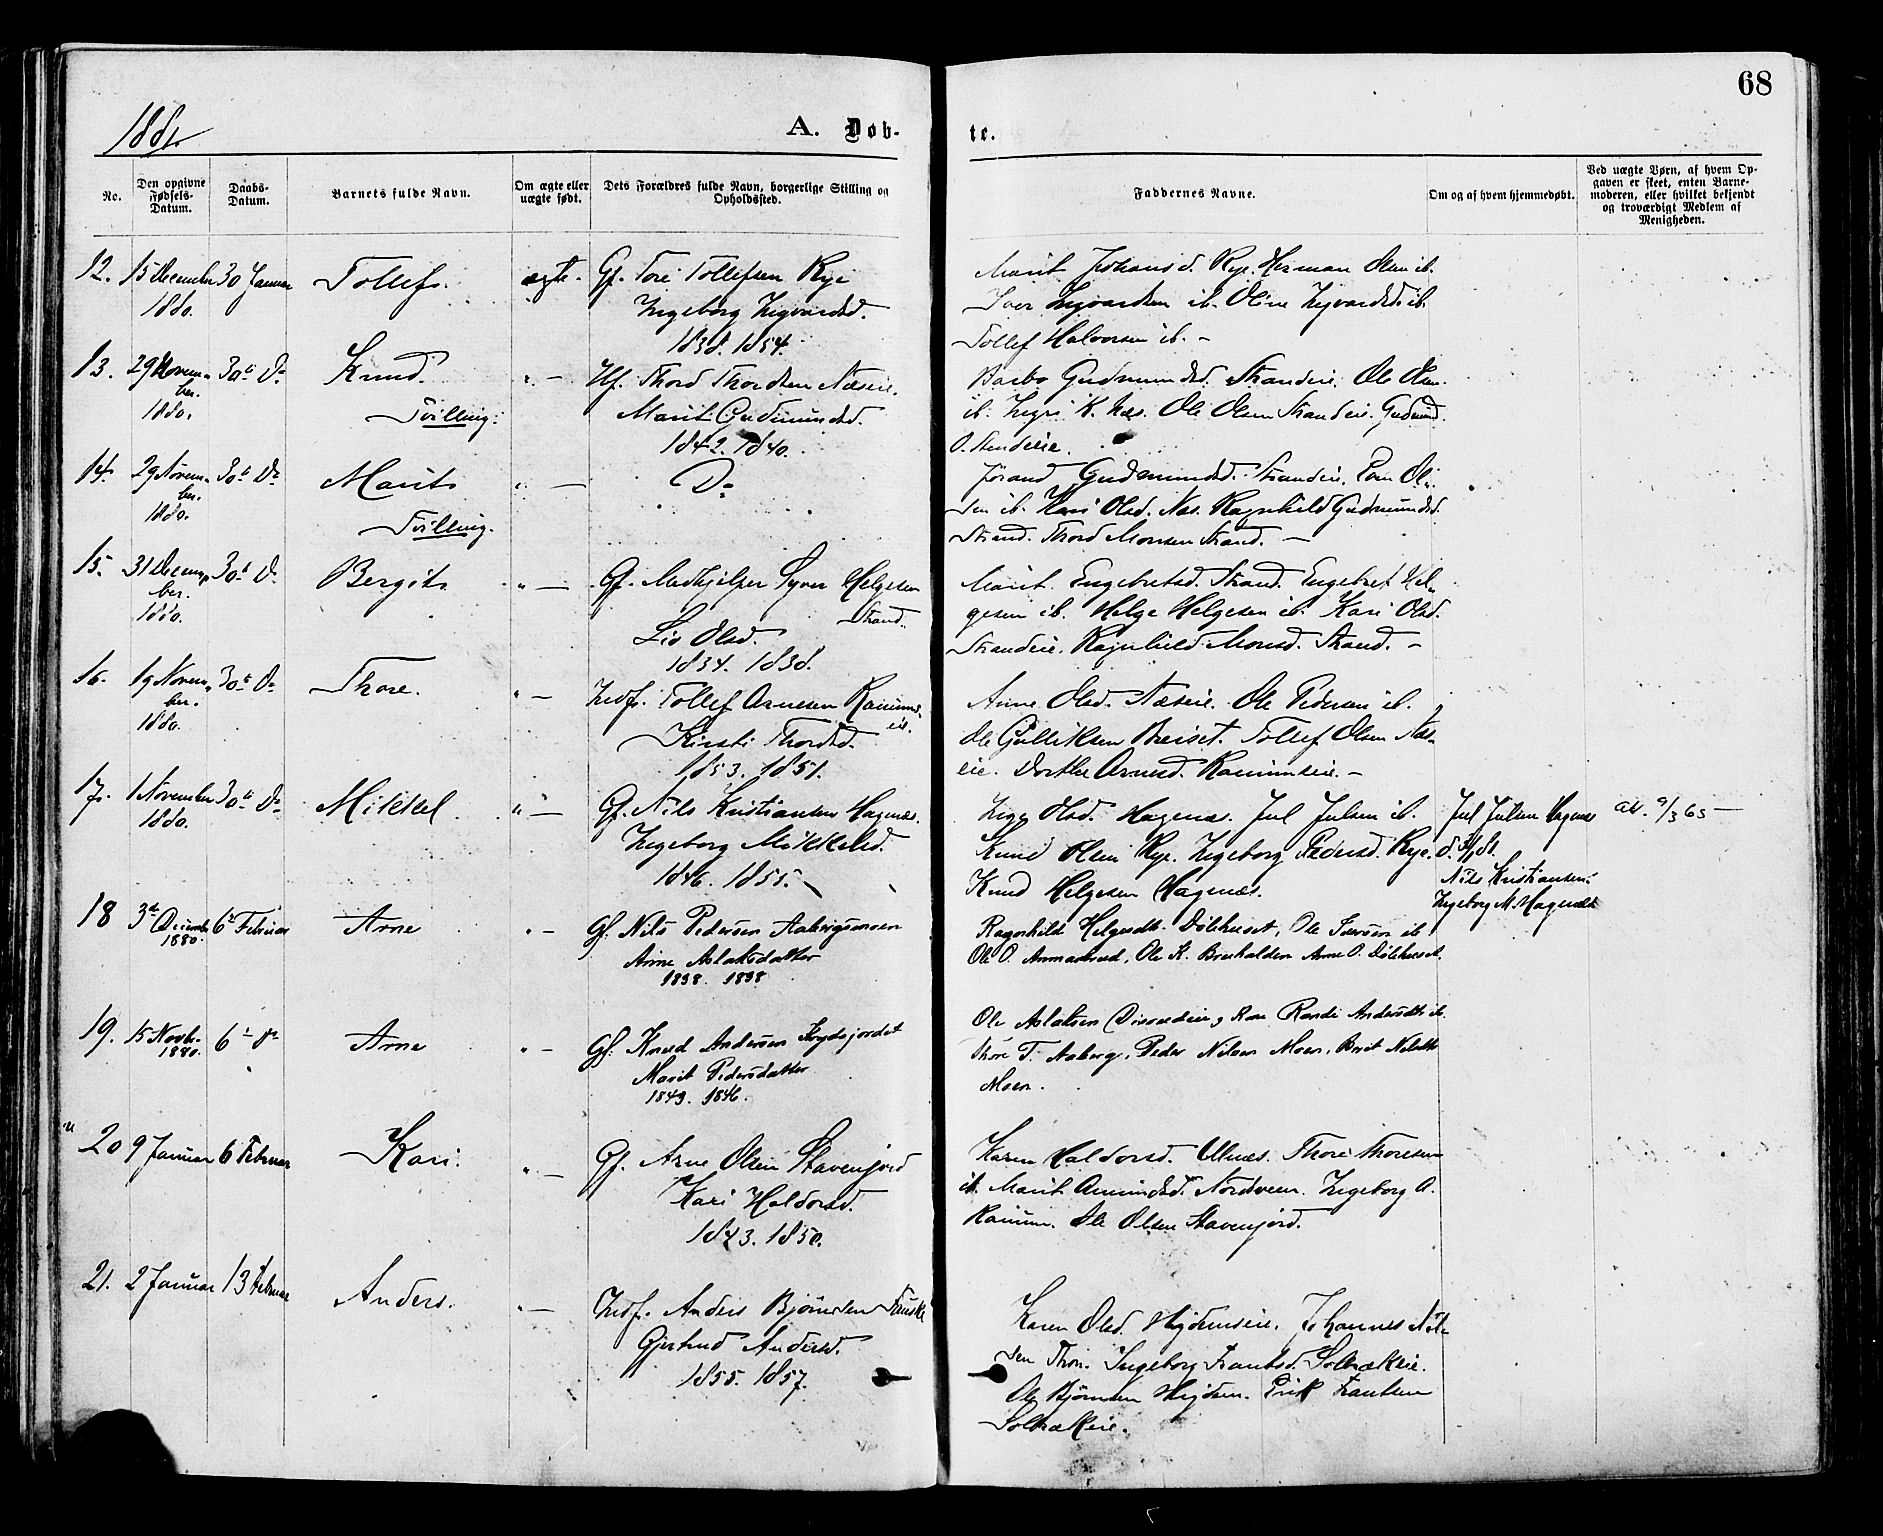 68
1881.
A. Døb-
te.
No.
Den opgivne Fødsels-Datum.
Daabs-Datum.
Barnets fulde Navn.
Om ægte eller uægte født.
Dets Forældres fulde Navn, borgerlige Stilling og Opholdssted.
Faddernes Navne.
Om og af hvem hjemmedøbt.
Ved uægte Børn, af hvem Opgaven er skeet, enten Barnemoderen, eller hvilket bekjendt og troværdigt Medlem af Menigheden.
12. 15 December 30 Januar Tollef. ægte. Gf. Tore Tollefsen Rye
1880. Ingeborg Ingvardsd.
1838. 1854.
Marit Johansd. Rye. Herman Olsen ib.
Iver Ingvardsen ib. Oline Ingvardsd. ib.
Tollef Halvorsen ib. –
13. 29 Novem- 30te Do Knud. " – Hf. Thord Thordsen Næseie.
ber.
1880. Tvilling. Marit Gudmundsd.
1842. 1840.
Barbo Gudmundsd. Strandeie. Ole Olsen
ib. Ingri K. Næs. Ole Olsen Strandeie. Gudmund
O. Strandeie.
14. 29 Novem- 30te Do Marit " – Do
ber.
1880. Tvilling.
Jørand Gudmundsd. Strandeie. Ol-
sen ib. Kari Olsd. Næs. Ragnhild Gudmundsd.
Strand. Thord Monsen Strand. –
15. 31 Decem- 30te Do Bergit " – Gf. Medhjelper Syver Helgesen
ber. Strand.
1880. Liv Olsd.
1834. 1838.
Marit Engebretsd. Strand. Engebret Hel-
gesen ib. Helge Helgesen ib. Kari Olsd.
Strandeie. Ragnhild Monsd. Strand. –
16. 19 Novem- 30te Do Thore. " – Indf. Tollef Arnesen Ramums-
ber. eie.
1880. Kirsti Thordsd.
1853. 1851.
Anne Olsd. Næseie. Ole Pedersen ib.
Ole Gulliksen Breiset. Tollef Olsen Næs-
eie. Dorthe Arnesd.
17. 1 November 30te Do Mikkel " – Gf. Nils Kristiansen Hagenæs.
1880. Ingeborg Mikkelsd.
1846. 1855.
Olsd. Hagenæs. Jul Julsen ib.
Knud Olsen Rye. Ingeborg Pedersd. Rye.
Knud Helgesen Hagenæs.
Jul Julsen Hagenæs
Nils Kristiansen.
Ingeborg M. Hagenæs
9/3 65 –
18 3die December 6te Februar Arne " – Gf. Nils Pedersen Aabergsmoen
1880. Anne Aslaksdatter
1838. 1838
Ragnhild Helgesdtr. Dølehuset, Ole Iversen ib
Ole O. Ole K. Bruhalden Arne O. Dølehuset.
19. 15 Novbr. 6te Do Arne " – Gf. Knud Andersen
1880. Marit Pedersdatter
1849. 1846.
Ole Aslaksen Kone Randi Andersdtr. ib.
Thore T. Aaberg, Peder Nilsen Moen, Brit Nilsdtr
Moen.
20 9 Januar 6 Februar Kari. " – Gf. Arne Olsen Stavenjord
Kari Haldorsd.
1843. 1850.
Karen Haldorsd. Ulnæs. Thore Thoresen
ib. Marit Amundsd. Nordveen. Ingeborg A.
Ole Olsen Stavenjord.
21. 2 Januar 13 Februar Anders. " – Indf. Anders Bjørnsen Fauske
Gjertrud Andersd.
1855. 1857.
Karen Olsd. Johannes Nil-
sen Thon. Ingeborg Frantsd. Solbrækeie.
Ole Bjørnsen Erik Frantsen
Solbrækeie.